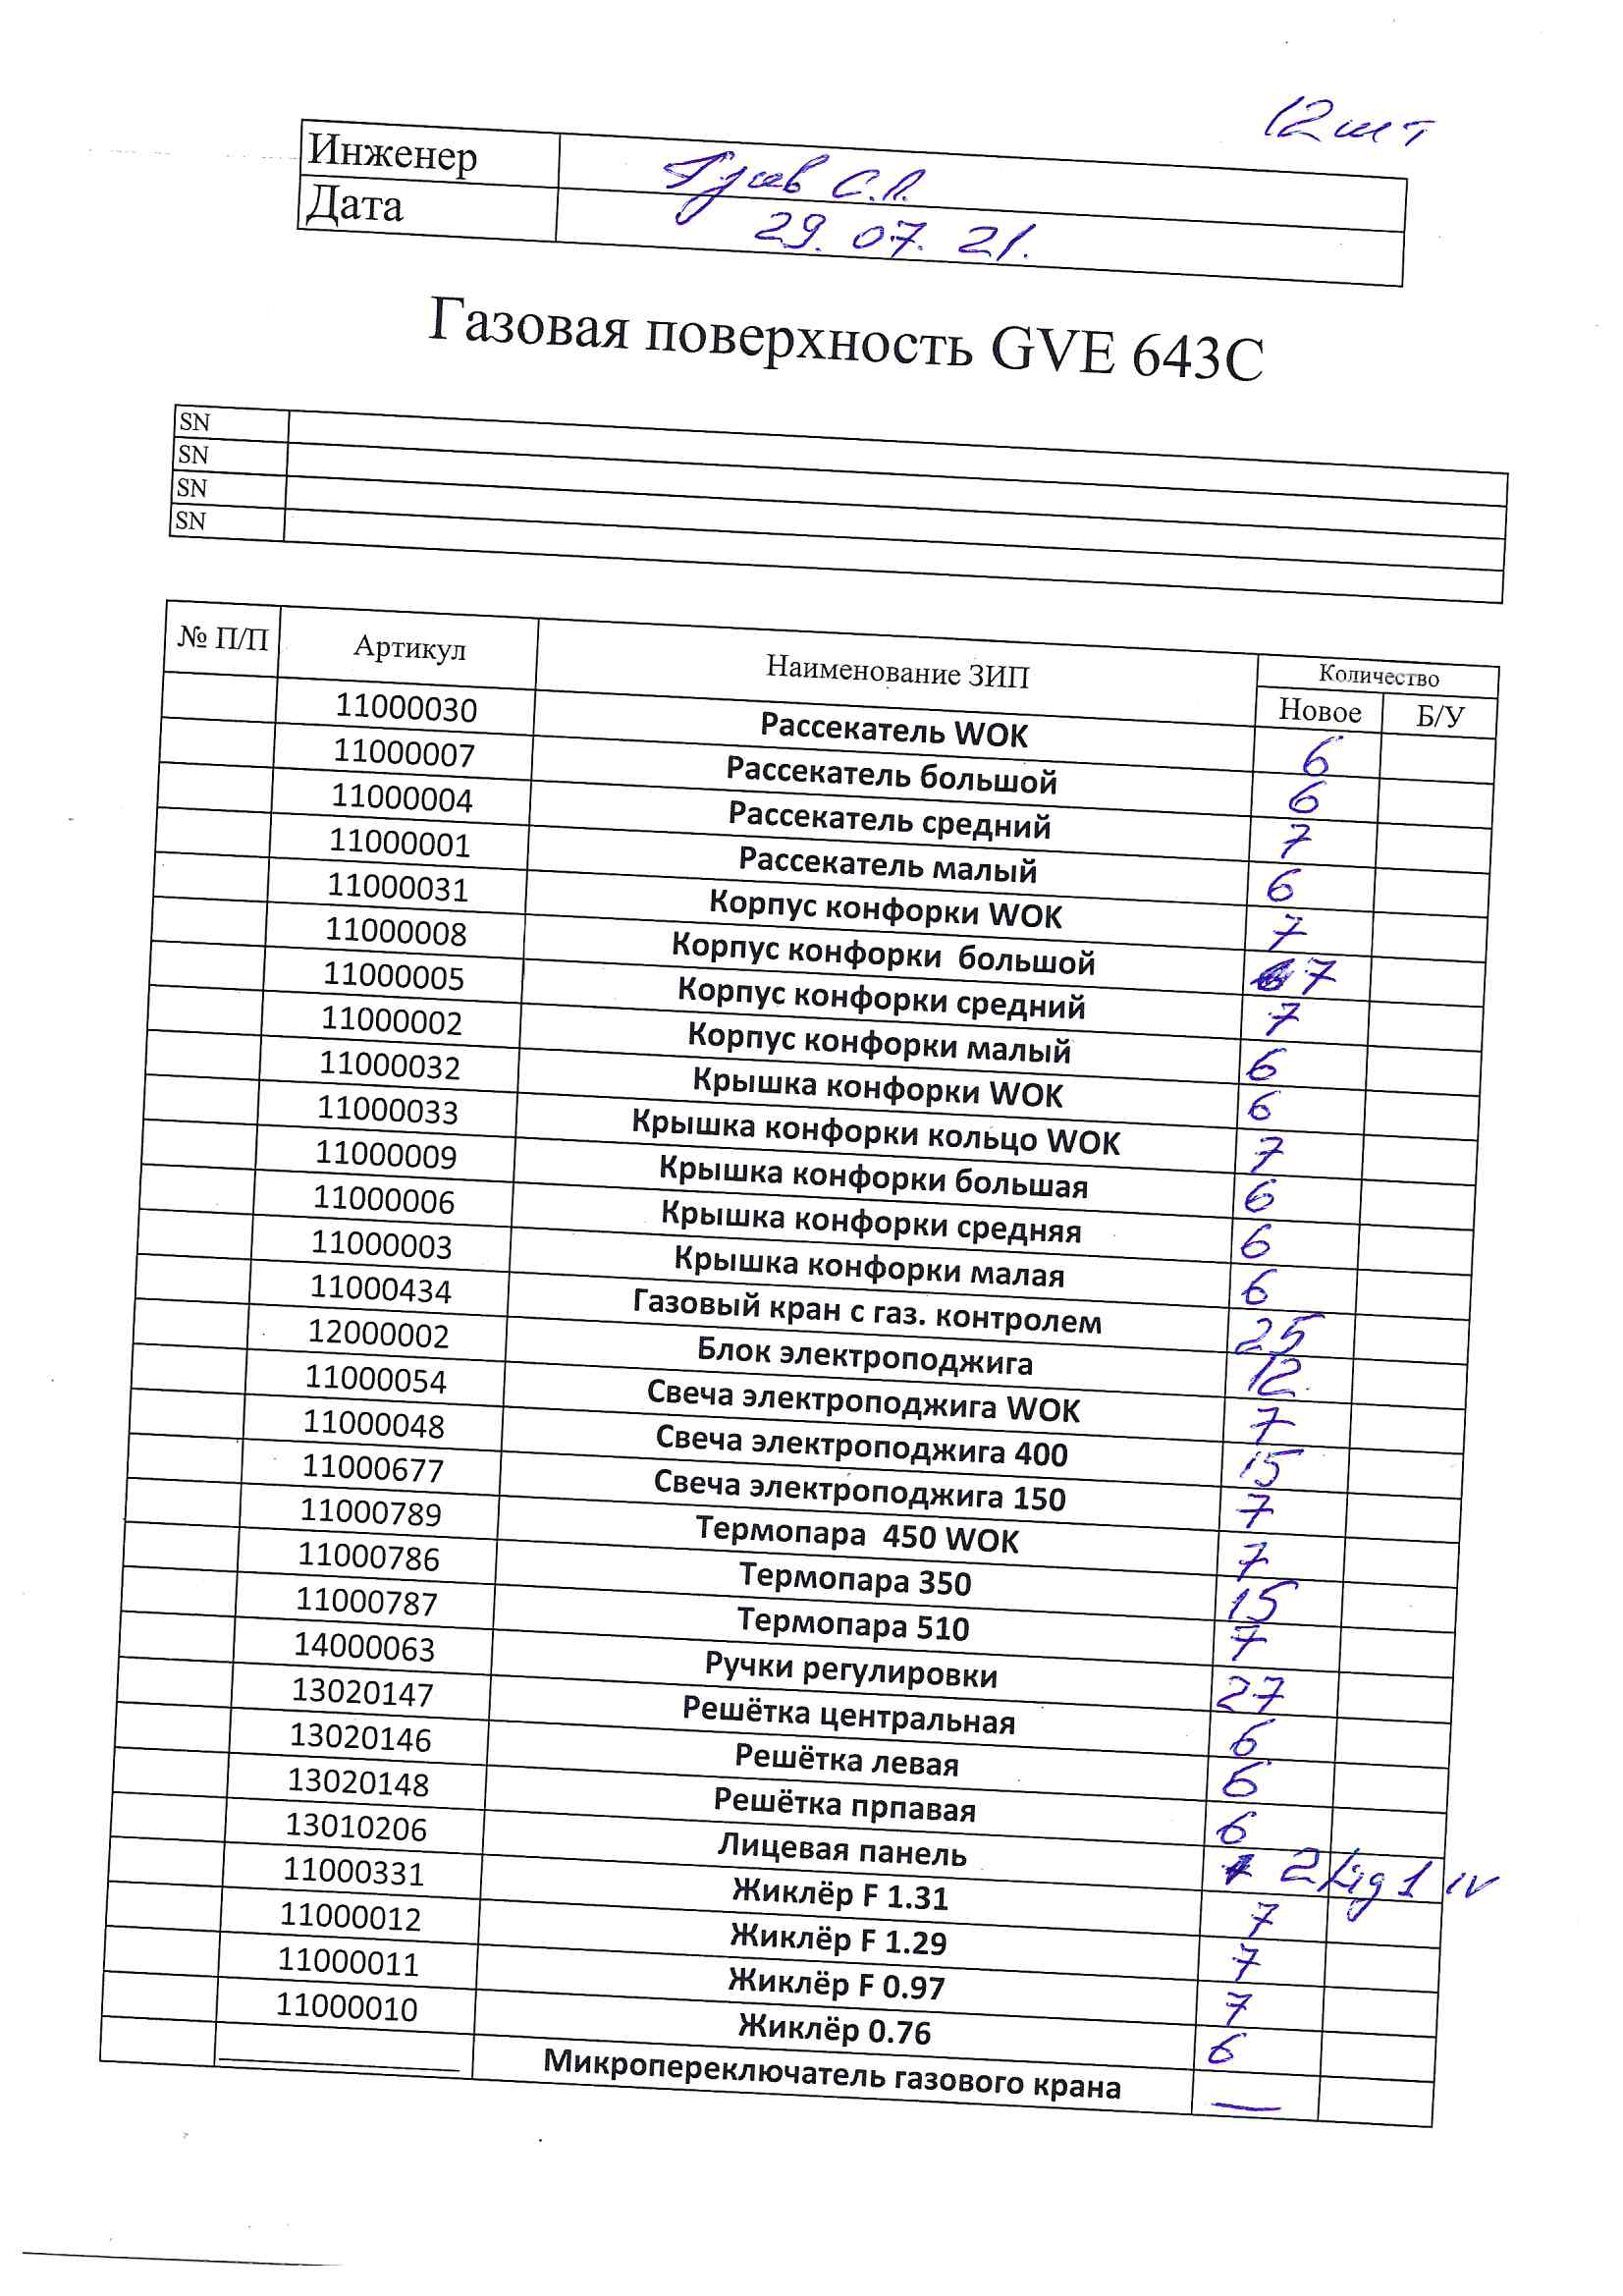 12 шт
Инженер Гусев С.П.
Дата 29.07.21.
Газовая поверхность GVE 643C
SN
SN
SN
SN
№ П/П Артикул Наименование ЗИП Количество
Новое Б/У
11000030 Рассекатель WOK 6
11000007 Рассекатель большой 6
11000004 Рассекатель средний 7
11000001 Рассекатель малый 6
11000031 Корпус конфорки WOK 7
11000008 Корпус конфорки большой 7
11000005 Корпус конфорки средний 7
11000002 Корпус конфорки малый 6
11000032 Крышка конфорки WOK 6
11000033 Крышка конфорки кольцо WOK 7
11000009 Крышка конфорки большая 6
11000006 Крышка конфорки средняя 6
11000003 Крышка конфорки малая 6
11000434 Газовый кран с газ. контролем 25
12000002 Блок электроподжига 12
11000054 Свеча электроподжига WOK 7
11000048 Свеча электроподжига 400 15
11000677 Свеча электроподжига 150 7
11000789 Термопара 450 WOK 7
11000786 Термопара 350 15
11000787 Термопара 510 7
14000063 Ручки регулировки 27
13020147 Решётка центральная 6
13020146 Решётка левая 6
13020148 Решётка прпавая 6
13010206 Лицевая панель 2 1 IV
11000331 Жиклёр F 1.31 7
11000012 Жиклёр F 1.29 7
11000011 Жиклёр F 0.97 7
11000010 Жиклёр 0.76 6
Микропереключатель газового крана —